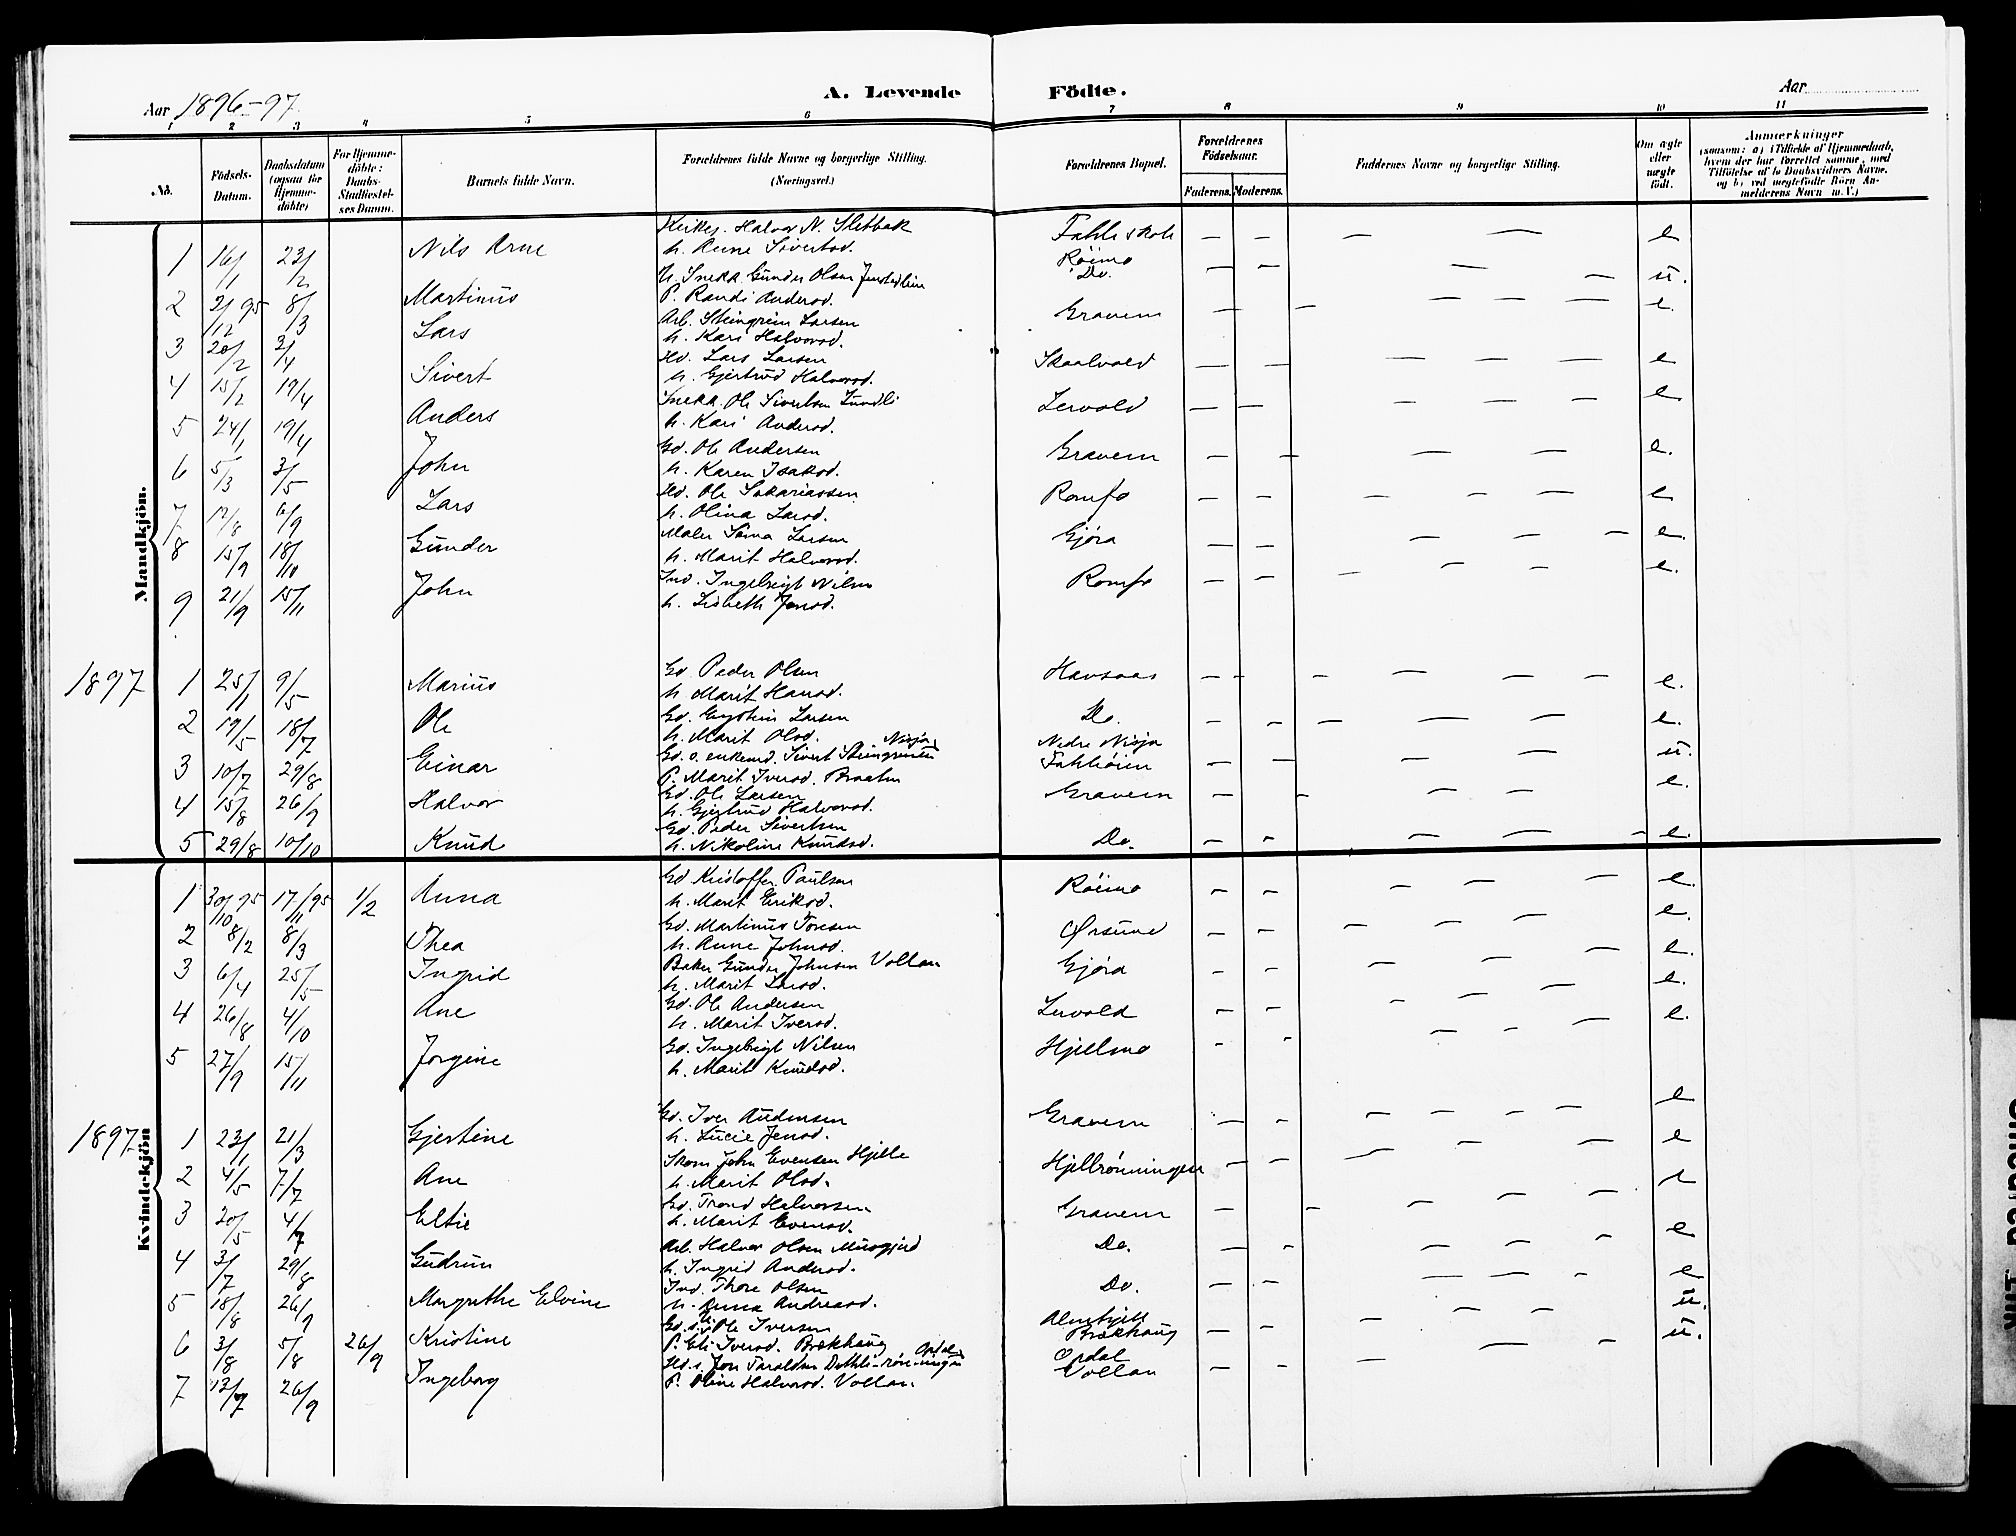 Aar 1896-97.
A. Levende Födte.
Aar
1 2 3 4 5 6 7 8 9 10 11
No.
Födsels-Datum.
Daabsdatum (ogsaa for Hjemme-döbte)
For Hjemme-döbte: Daabs-Stadfæstel-ses Datum.
Barnets fulde Navn.
Forældrenes fulde Navne og borgerlige Stilling. (Næringsvei.)
Forældrenes Bopæl.
Forældrenes Födselsaar.
Faderens. Moderens.
Faddernes Navne og borgerlige Stilling.
Om ægte eller uægte födt.
Anmærkninger
(saasom: a) i Tilfælde af Hjemmedaab, hvem der har forrettet samme, med Tilföielse af to Daabsvidners Navne, og b) ved uægtefödte Börn An-melderens Navn m. V.)
Mandkjön.
1 16/1 23/2 Nils Arne Kirkes. Halvor N. Sletbak Fahleskole — — — — e
h. Anne Sivertsd. Röimo
2 2/12 95 8/3 Martinus U. Snekk. Gunder Olsen Do. — — — — u.
P. Randi Andersd.
3 20/2 3/4 Lars Arb. Steingrim Larsen Gravem — — — — — e.
h. Kari Halvorsd.
4 15/2 19/4 Sivert Hd. Lars Larsen Skaalvold — — — — — e
h. Gjertrud Halvorsd.
5 24/1 19/4 Anders Snekk. Ole Sivertsen Lundli Lervold — — — — — e
h. Kari Andersd.
6 5/3 3/5 John Gd. Ole Andersen Gravem — — — — e.
h. Karen Isaksd.
7 12/8 6/9 Lars Hd. Ole Sakariassen Romfo — — — — — e
h. Olina Larsd.
8 15/9 18/10 Gunder Maler Larsen Gjöra — — — — — e.
h. Marit Halvorsd.
9 21/9 15/11 John Ind. Ingebrigt Nilsen Romfo — — — — — e.
h. Lisbeth Jensd.
1897 1 25/1 9/5 Marius Gd. Peder Olsen Havsaas — — — — — — e.
h. Marit Hansd.
2 19/5 18/7 Ole Gd. Eystein Larsen Do. — — — — — e.
h. Marit Olsd.
3 10/7 29/8 Einar Gd. s. enkemd. Sivert Steingrimsen Nisja Nedre Nisja — — — — u.
P. Marit Iversd. Braaten Fahlhöien
4 15/8 26/9 Halvor Gd. Ole Larsen Gravem — — — — e.
h. Gjertrud Halvorsd.
5 29/8 10/10 Knud Gd. Peder Sivertsen Do. — — — — — e.
h. Nikoline Knudsd.
Kvindekjön
1 30/10 95 17/11 95 1/2 Anna Gd. Kristoffer Paulsen Röimo — — — — — e.
h. Marit Eriksd.
2 8/2 8/3 Thea Gd. Martinus Toresen Ørsund — — — — — e.
h. Anne Johnsd.
3 6/4 25/5 Ingrid Baker Gunder Johnsen Vollan Gjöra — — — — — e
h. Marit Larsd.
4 26/8 4/10 Ane Gd. Ole Andersen Lervold — — — — — e.
h. Marit Iversd.
5 27/9 15/11 Jorgine Gd. Ingebrigt Nilsen Hjellmo — — — — — e.
h. Marit Knudsd.
1897 1 23/1 21/3 Gjertine Gd. Iver Andersen Gravem — — — — — — e
h. Lucie Jensd.
2 4/5 7/7 Ane Skom. John Evensen Hjelle Hjellrönningen — — — — — e
h. Marit Olsd.
3 20/5 4/7 Eltie Gd. Trond Halvorsen Gravem — — — — — e
h. Marit Evensd.
4 3/7 29/8 Gudrun Arb. Halvor Olsen Musgjerd Do. — — — — — e
h. Ingrid Andersd.
5 18/8 26/9 Margrethe Elvine Ind. Thore Olsen Do. — — — — — e
h. Anna Andreasd.
6 3/8 5/8 26/9 Kristine Gd. s. Ole Iversen — — — — — u.
P. Eli Iversd. Brækhaug Brækhaug
7 13/7 26/9 Ingeborg Hd. s. Jon Taraldsen Opdal Opdal — — — — — u.
P. Oline Halvorsd. Vollan. Vollan